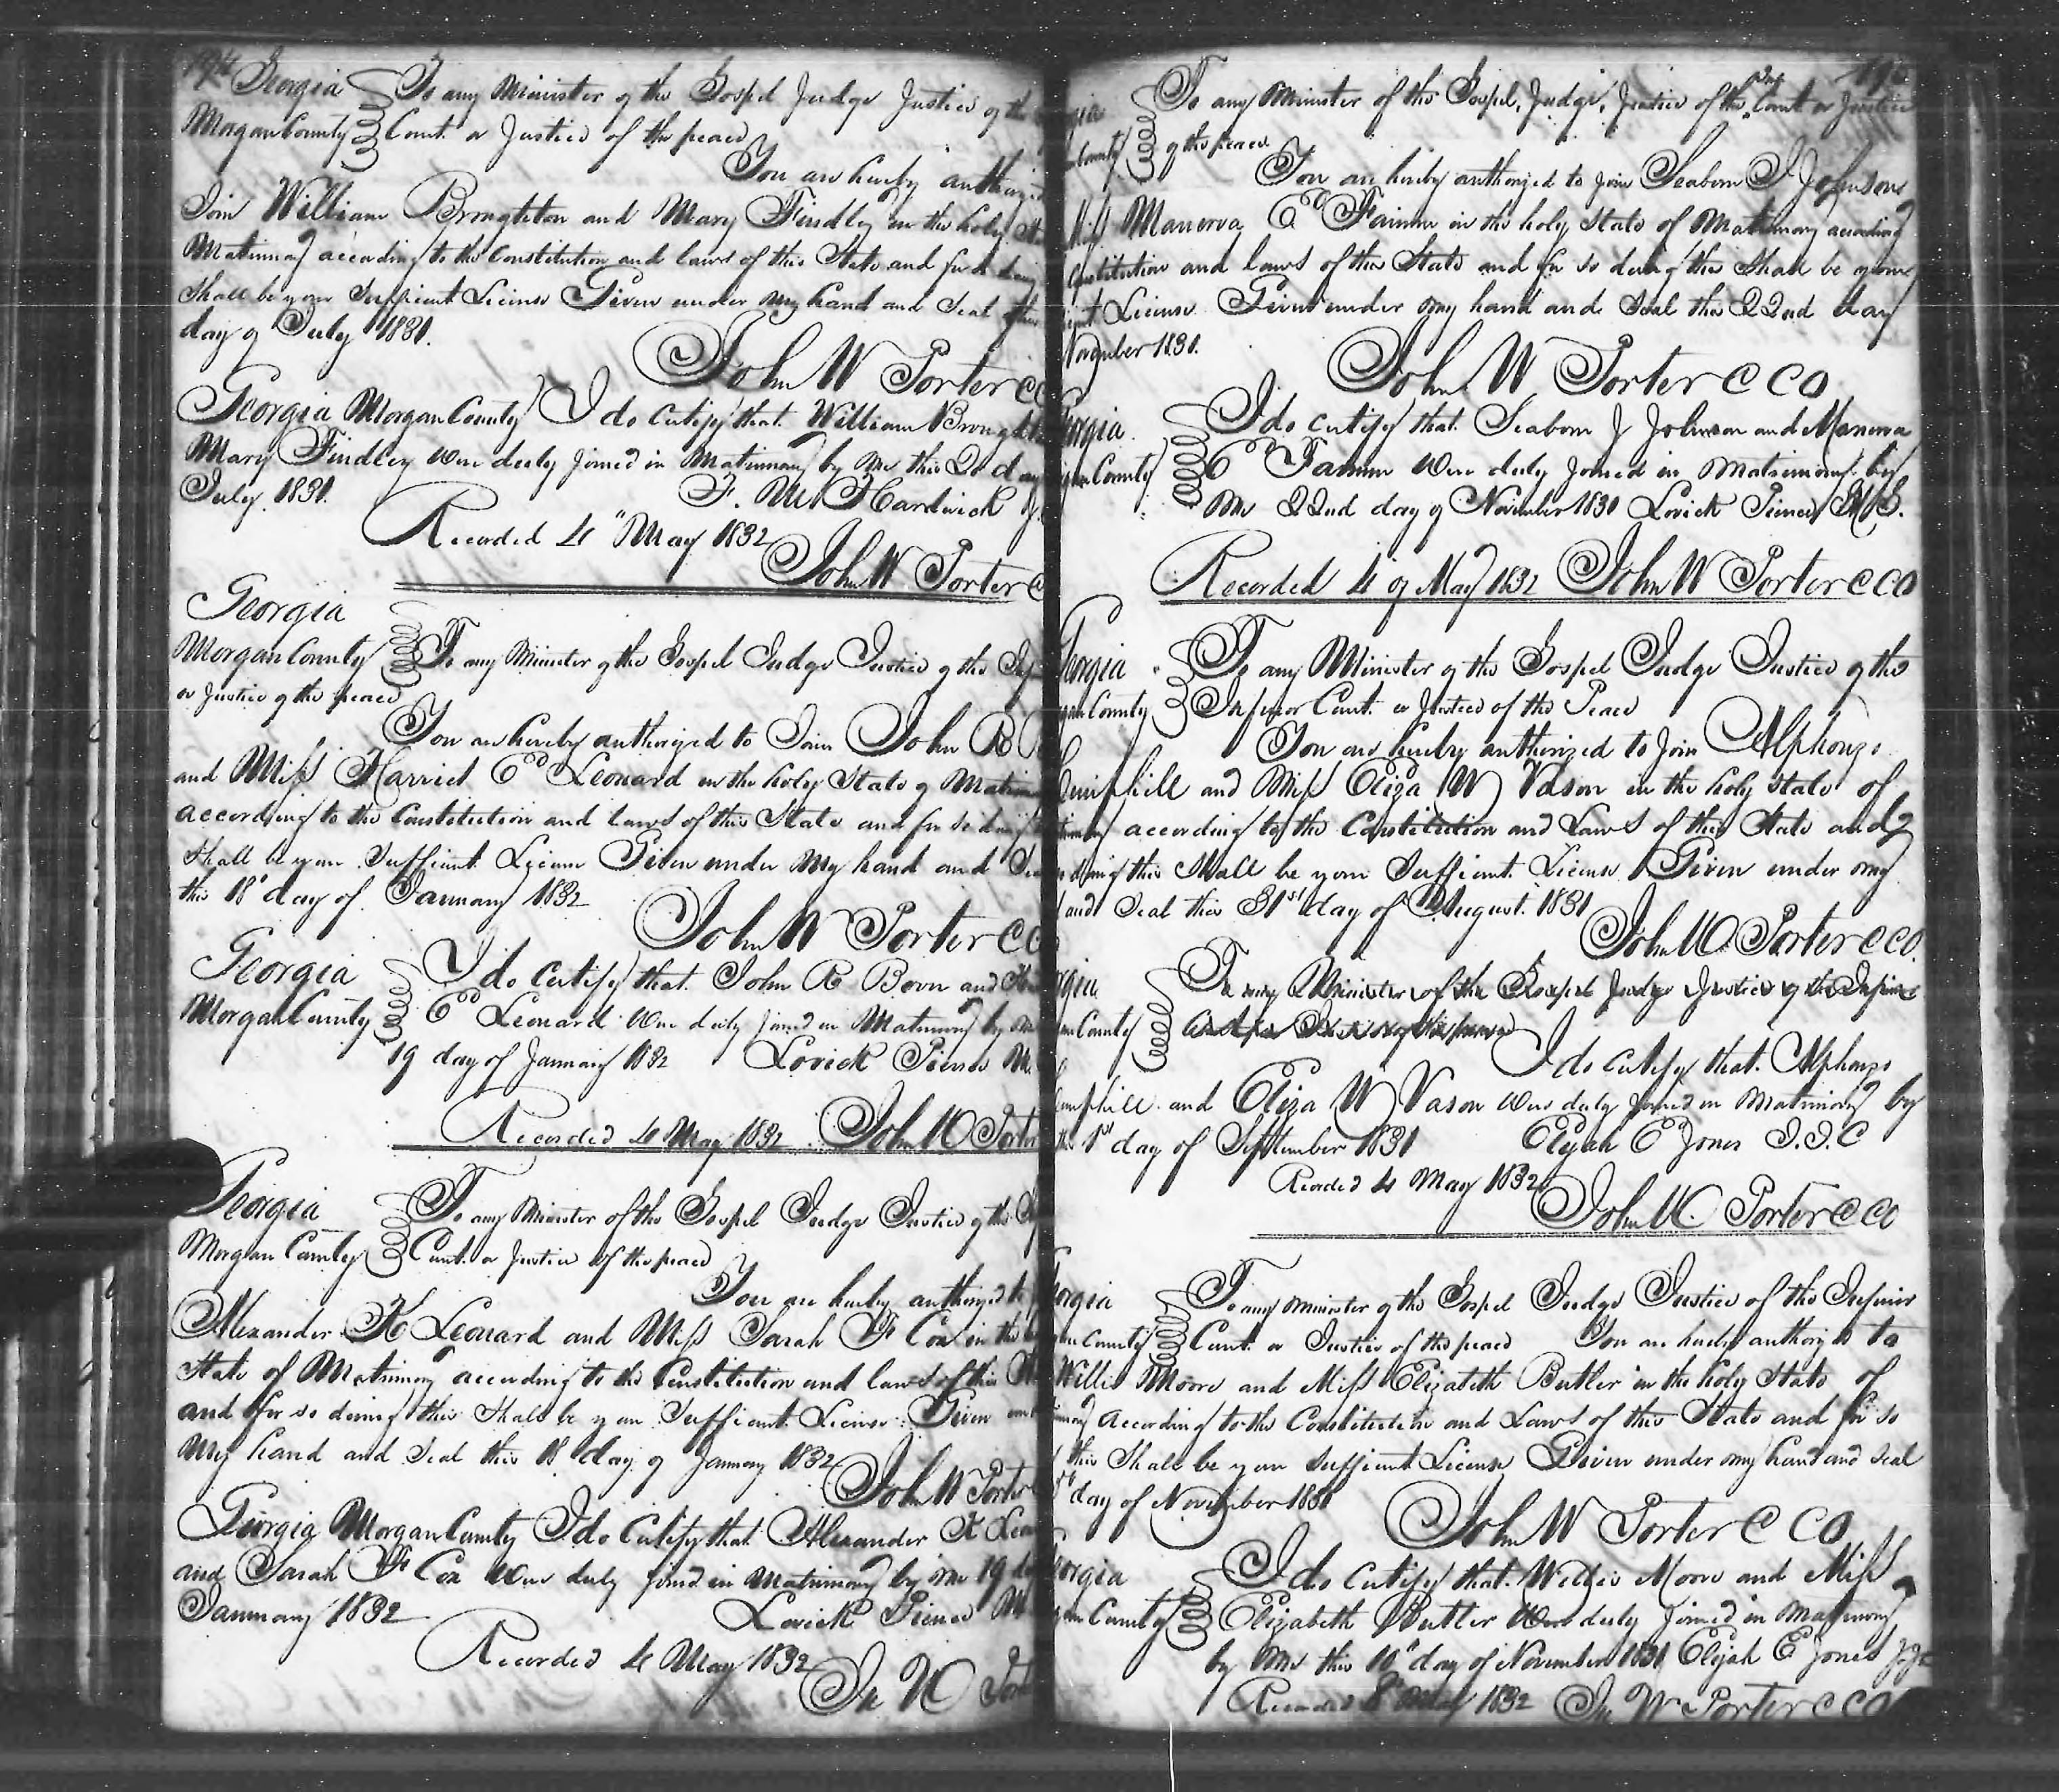 194 Georgia To any Minister of the Gospel Judge Justice of the
Morgan County Court or Justice of the peace
You are hereby authorized
Join William Broughton and Mary Findley in the holy
Matrimony according to the Constitution and laws of this State and for so doing
Shall be your Sufficient License Given under my hand and Seal
day of July 1831.
John W Porter CC
Georgia Morgan County I do certify that William
Mary Findley were duly joined in Matrimony by me this day
July 1831.
Hardwick
Recorded 4" May 1832
John W Porter C
Georgia
Morgan County To any Minister of the Gospel Judge Justice of the
or Justice of the peace
You are hereby authorized to Join John R
and Miss Harriet E Leonard in the holy State of
according to the Constitution and laws of this State and for so doing
Shall be your Sufficient License Given under My hand and
this 18" day of January 1832
John W Porter CC
Georgia I do Certify that John R and
Morgan County E Leonard were duly joined in Matrimony by
19 day of January 1832 Lovick Pierce M.
Recorded 4 May 1832 John W Porter
Georgia To any Minister of the Gospel Judge Justice of the
Morgan County Court or Justice of the peace
You are hereby authorized to
Alexander K Leonard and Miss Sarah F Cox in the
State of Matrimony according to the Constitution and laws of this
and for so doing this Shall be your Sufficient License Given
My hand and Seal this 18 day of January 1832
John W Porter
Georgia Morgan County I do Certify that Alexander K
and Sarah F Cox were duly joined in Matrimony by me 19
January 1832 Lovick Pierce M
Recorded 4 May 1832
Jn W
To any Minister of the Gospel, Judge, Justice of the Court or Justice
of the peace
You are hereby authorized to join Seaborn J Johnson
Miss Manerva E in the holy State of Matrimony according
Constitution and laws of this State and for so doing this Shall be your
License Given under my hand and Seal this 22nd day
November 1831.
John W Porter C C O
I do certify that Seaborn J Johnson and Manerva
County E were duly joined in Matrimony by
Me 22nd day of November 1831 Lovick Pierce
Recorded 4 of May 1832 John W Porter C C O
Georgia To any Minister of the Gospel Judge Justice of the
County Inferior Court or Justice of the Peace
You are hereby authorized to join Alphonzo
and Miss Eliza W Vason in the holy State of
according to the Constitution and Laws of this State and
doing this Shall be your Sufficient License Given under my
and Seal this 31st day of August 1831
John W Porter C C O.
To any Minister of the Gospel Judge Justice of the Inferior
County
I do certify that Alphonzo
and Eliza W Vason were duly joined in Matrimony by
1st day of September 1831 Elijah E Jones J.I.C
Recorded 4 May 1832
John W. Porter C C O
To any minister of the Gospel Judge Justice of the Inferior
County Court or Justice of the peace You are hereby authorized to
Willis Moore and Miss Elizabeth Butler in the holy State of
according to the Constitution and Laws of this State and for so
this Shall be your Sufficient License Given under my hand and Seal
day of November 1831
John W Porter C C O
I do certify that Willis Moore and Miss
County Elizabeth Butler were duly joined in Matrimony
by Me this 10" day of November 1831 Elijah E Jones
Recorded May 1832 Jn W Porter C C O